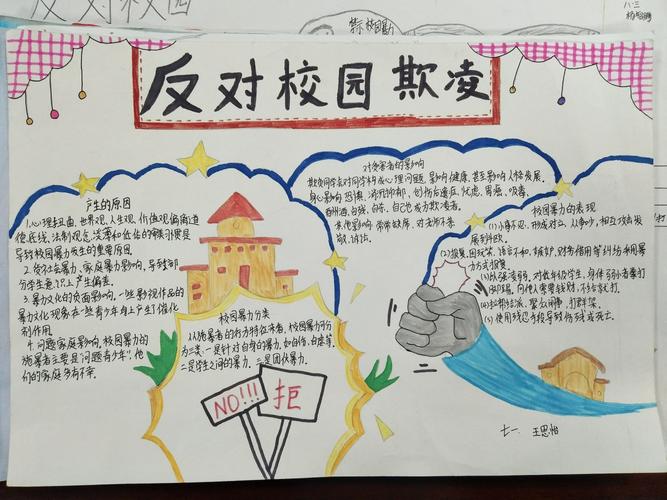 反对校园
禁示校园暴力
八.三
反对校园欺凌
产生的原因
1.心理扭曲,世界观、人生观、价值观偏离道
德底线,法制观念淡薄和
导致校园暴力发生的重要原因。
2.受社会暴力、家庭暴力影响,导致部
分学生意识上产生偏差。
3.暴力文化的负面影响,一些影视作品的
暴力文化现象在一些青少年身上产生了催化
剂作用。
4.问题家庭影响,校园暴力的
施暴者主要是“问题青少年”,他
们的家庭多有不幸。
校园暴力分类
从施暴者的行为特征来看,校园暴力可分
为三类:一是针对自身的暴力,如自伤、自虐等。
二是学生之间的暴力,三是团伙暴力。
NO!!!
拒
对受害者的影响
欺负同学会对同学构成心理问题,影响健康,甚至影响人格发展。
身心影响:恐惧、消沉抑郁、创伤后遗症、忧虑、胃痛、吸毒、
自残、自杀、自己也成为欺凌者。
其他影响:带佛缺席,对老师不恭
敬,诉讼。
校园暴力的表现
(1)小事不忍,形成对立,从争吵,相互攻击发
展到斗殴。
(2)报复。因玩笑、语言不和、财物借用等纠纷采用暴
力方式报复。
(3)以强凌弱。对低年级学生,身体弱小者拳打
脚踢,向他人索要钱财,不给就打。
(4)拉帮结派,聚众闹事,打群架。
(5)使用残忍手段导致伤残或死亡。
七一
王思怡